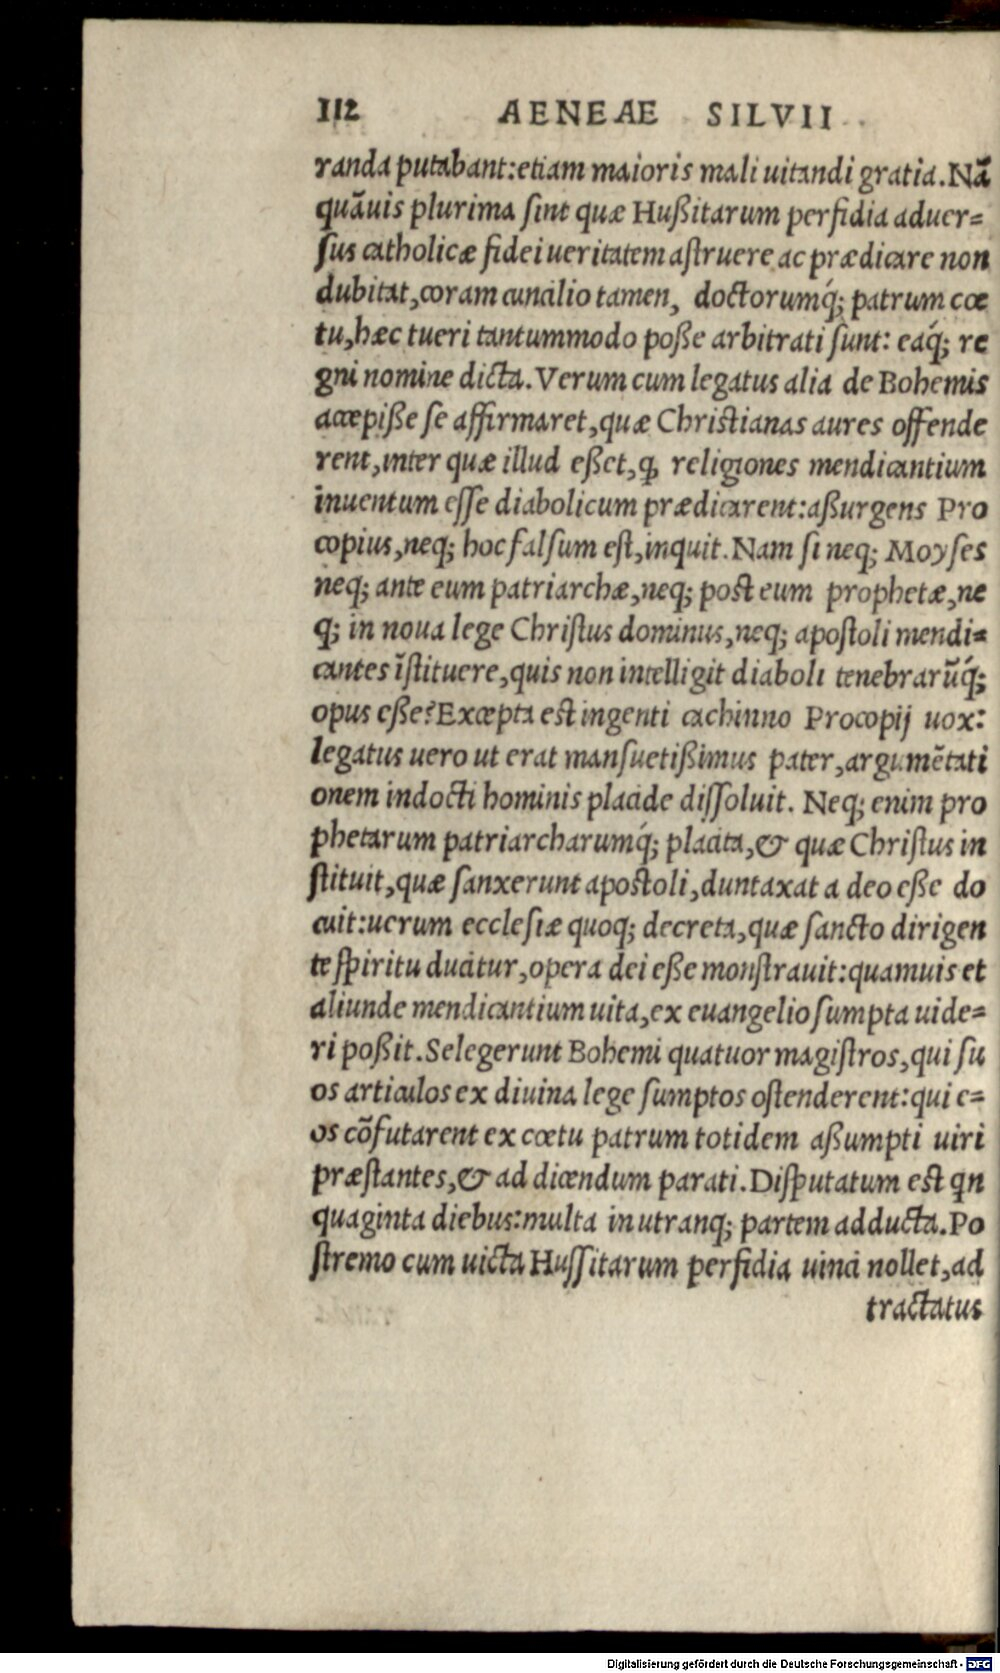 112 AENEAE SILVII
randa putabant:etiam maioris mali uitandi gratia.Nā
quāuis plurima ſint quæ Hußitarum perfidia aduer=
ſus catholicæ fidei ueritatem aſtruere ac prædicare non
dubitat,coram concilio tamen, doctorumq́; patrum cœ
tu,hæc tueri tantummodo poße arbitrati ſunt: eaq́; re
gni nomine dicta.Verum cum legatus alia de Bohemis
accepiße ſe affirmaret,quæ Christianas aures offende
rent,inter quæ illud eßet,ꝙ religiones mendicantium
inuentum eſſe diabolicum prædicarent:aßurgens Pro
copius,neq; hoc falſum eſt,inquit.Nam ſi neq; Moyſes
neq; ante eum patriarchæ,neq; post eum prophetæ,ne
q; in noua lege Chriſtus dominus,neq; apoſtoli mendi=
cantes īſtituere,quis non intelligit diaboli tenebrarūq́;
opus eße?Excepta est ingenti cachinno Procopij uox:
legatus uero ut erat manſuetißimus pater,argumētati
onem indocti hominis placide diſſoluit. Neq; enim pro
phetarum patriarcharumq́; placita,& quæ Chriſtus in
ſtituit,quæ ſanxerunt apostoli,duntaxat a deo eße do
cuit:uerum eccleſiæ quoq; decreta,quæ ſancto dirigen
te ſpiritu ducitur,opera dei eße monſtrauit:quamuis et
aliunde mendicantium uita,ex euangelio ſumpta uide=
ri poßit.Selegerunt Bohemi quatuor magiſtros,qui ſu
os articulos ex diuina lege ſumptos oſtenderent:qui e=
os cōfutarent ex cœtu patrum totidem aßumpti uiri
præſtantes,& ad dicendum parati.Diſputatum est qn
quaginta diebus:multa in utranq; partem adducta.Po
ſtremo cum uicta Huſſitarum perfidia uinci nollet,ad
tractatus
Digitalisierung gefördert durch die Deutsche Forschungsgemeinschaft - DFG